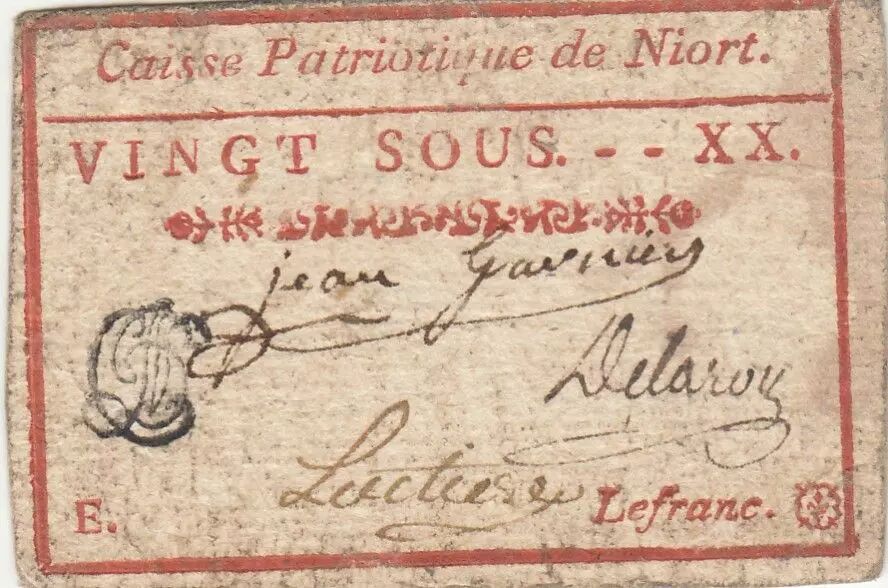 Caisse Patriotique de Niort.
VINGT SOUS. - - XX.
jean Garnier
Delaroy
E.
Lefranc.